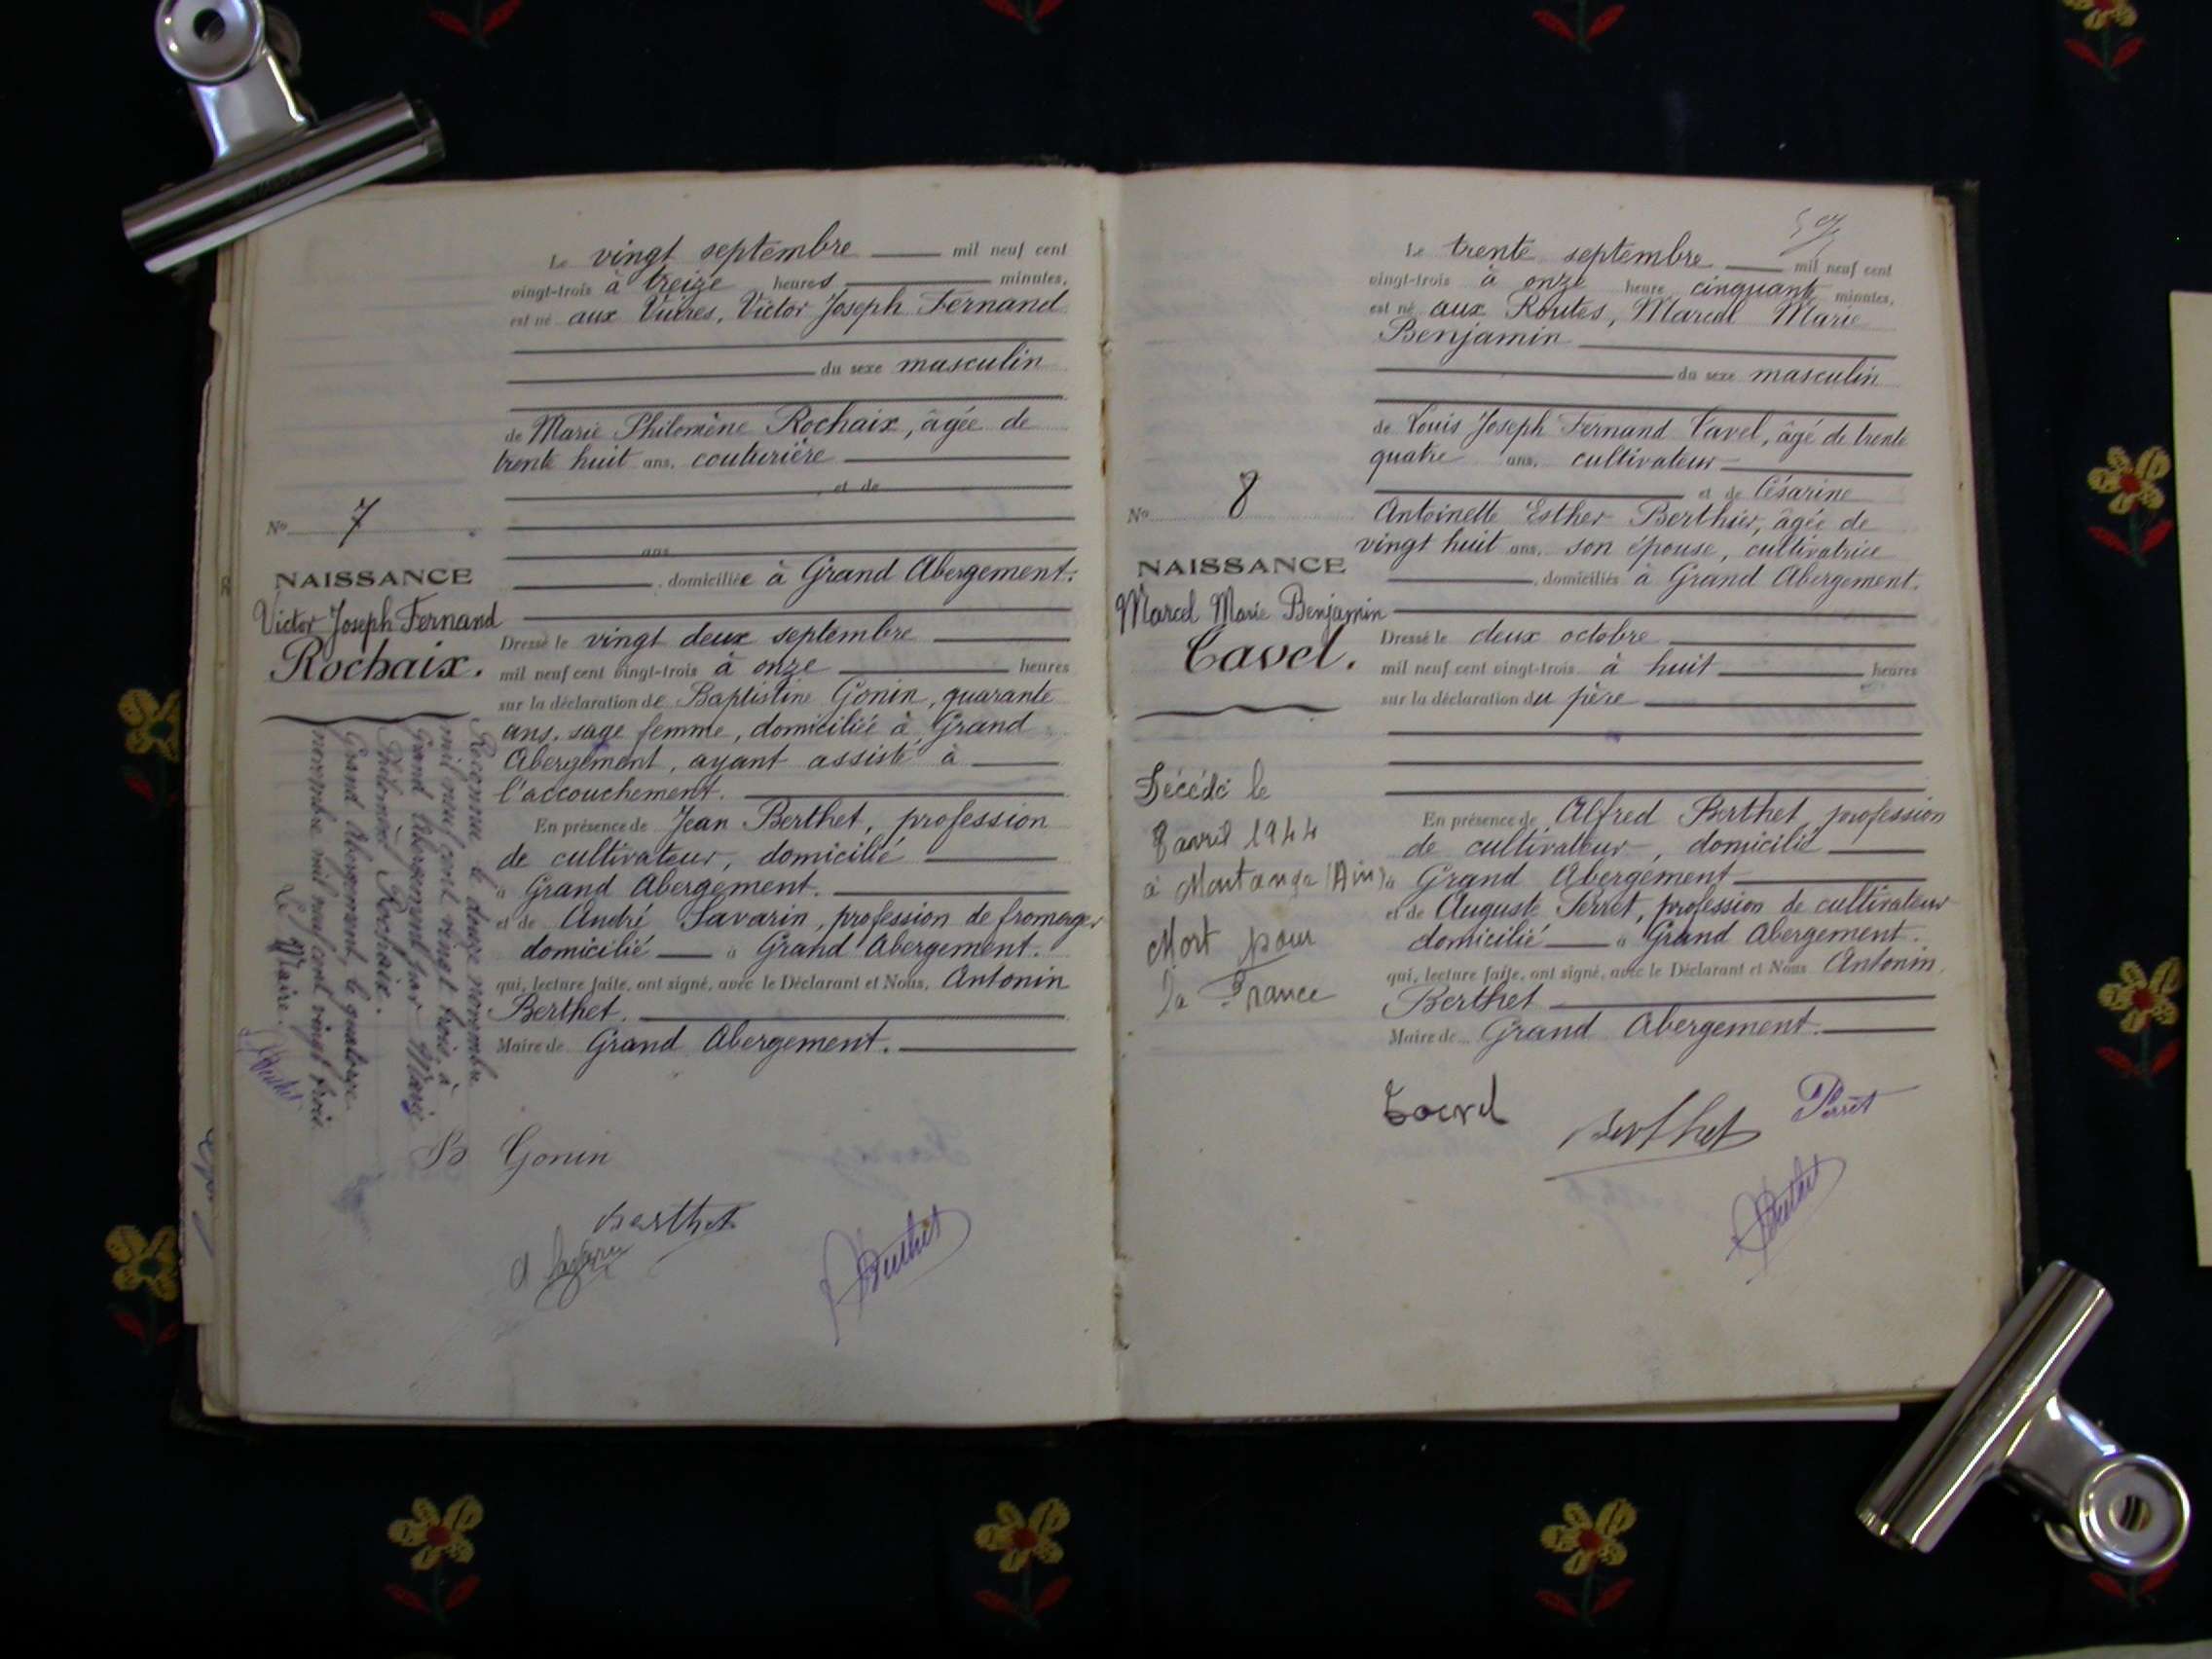 Le vingt septembre mil neuf cent
vingt-trois à treize heures minutes,
est né aux Vuires, Victor Joseph Fernand
du sexe masculin
de Marie Philomène Rochaix, âgée de
trente huit ans, couturière
, et de
ans
, domiciliée à Grand Abergement.
No 7
NAISSANCE
Victor Joseph Fernand
Rochaix.
Dressé le vingt deux septembre
mil neuf cent vingt-trois à onze heures
sur la déclaration de Baptistine Gonin, quarante
ans, sage femme, domiciliée à Grand
Abergement, ayant assisté à
l'accouchement.
En présence de Jean Berthet, profession
de cultivateur, domicilié
à Grand Abergement.
et de André Savarin, profession de fromager
domicilié à Grand Abergement.
qui, lecture faite, ont signé, avec le Déclarant et Nous, Antonin
Berthet.
Maire de Grand Abergement.
Reconnu le douze novembre
mil neuf cent vingt trois à
Grand Abergement par Marie
Philomène Rochaix.
Grand Abergement, le quatorze
novembre mil neuf cent vingt trois.
Le Maire.
B Gonin
Berthet
Le trente septembre mil neuf cent
vingt-trois à onze heure cinquante minutes,
est né aux Routes, Marcel Marie
Benjamin
du sexe masculin
de Louis Joseph Fernand Tavel, âgé de trente
quatre ans, cultivateur
et de Césarine
Antoinette Esther Berthier, âgée de
vingt huit ans, son épouse, cultivatrice
, domiciliés à Grand Abergement.
No 8
NAISSANCE
Marcel Marie Benjamin
Tavel.
Dressé le deux octobre
mil neuf cent vingt-trois à huit heures
sur la déclaration du père
En présence de Alfred Berthet, profession
de cultivateur, domicilié
à Grand Abergement
et de Auguste Perret, profession de cultivateur
domicilié à Grand Abergement.
qui, lecture faite, ont signé, avec le Déclarant et Nous Antonin
Berthet
Maire de Grand Abergement.
Décédé le
8 avril 1944
à Montange (Ain)
Mort pour
la France
Tavel
Berthet
Perret